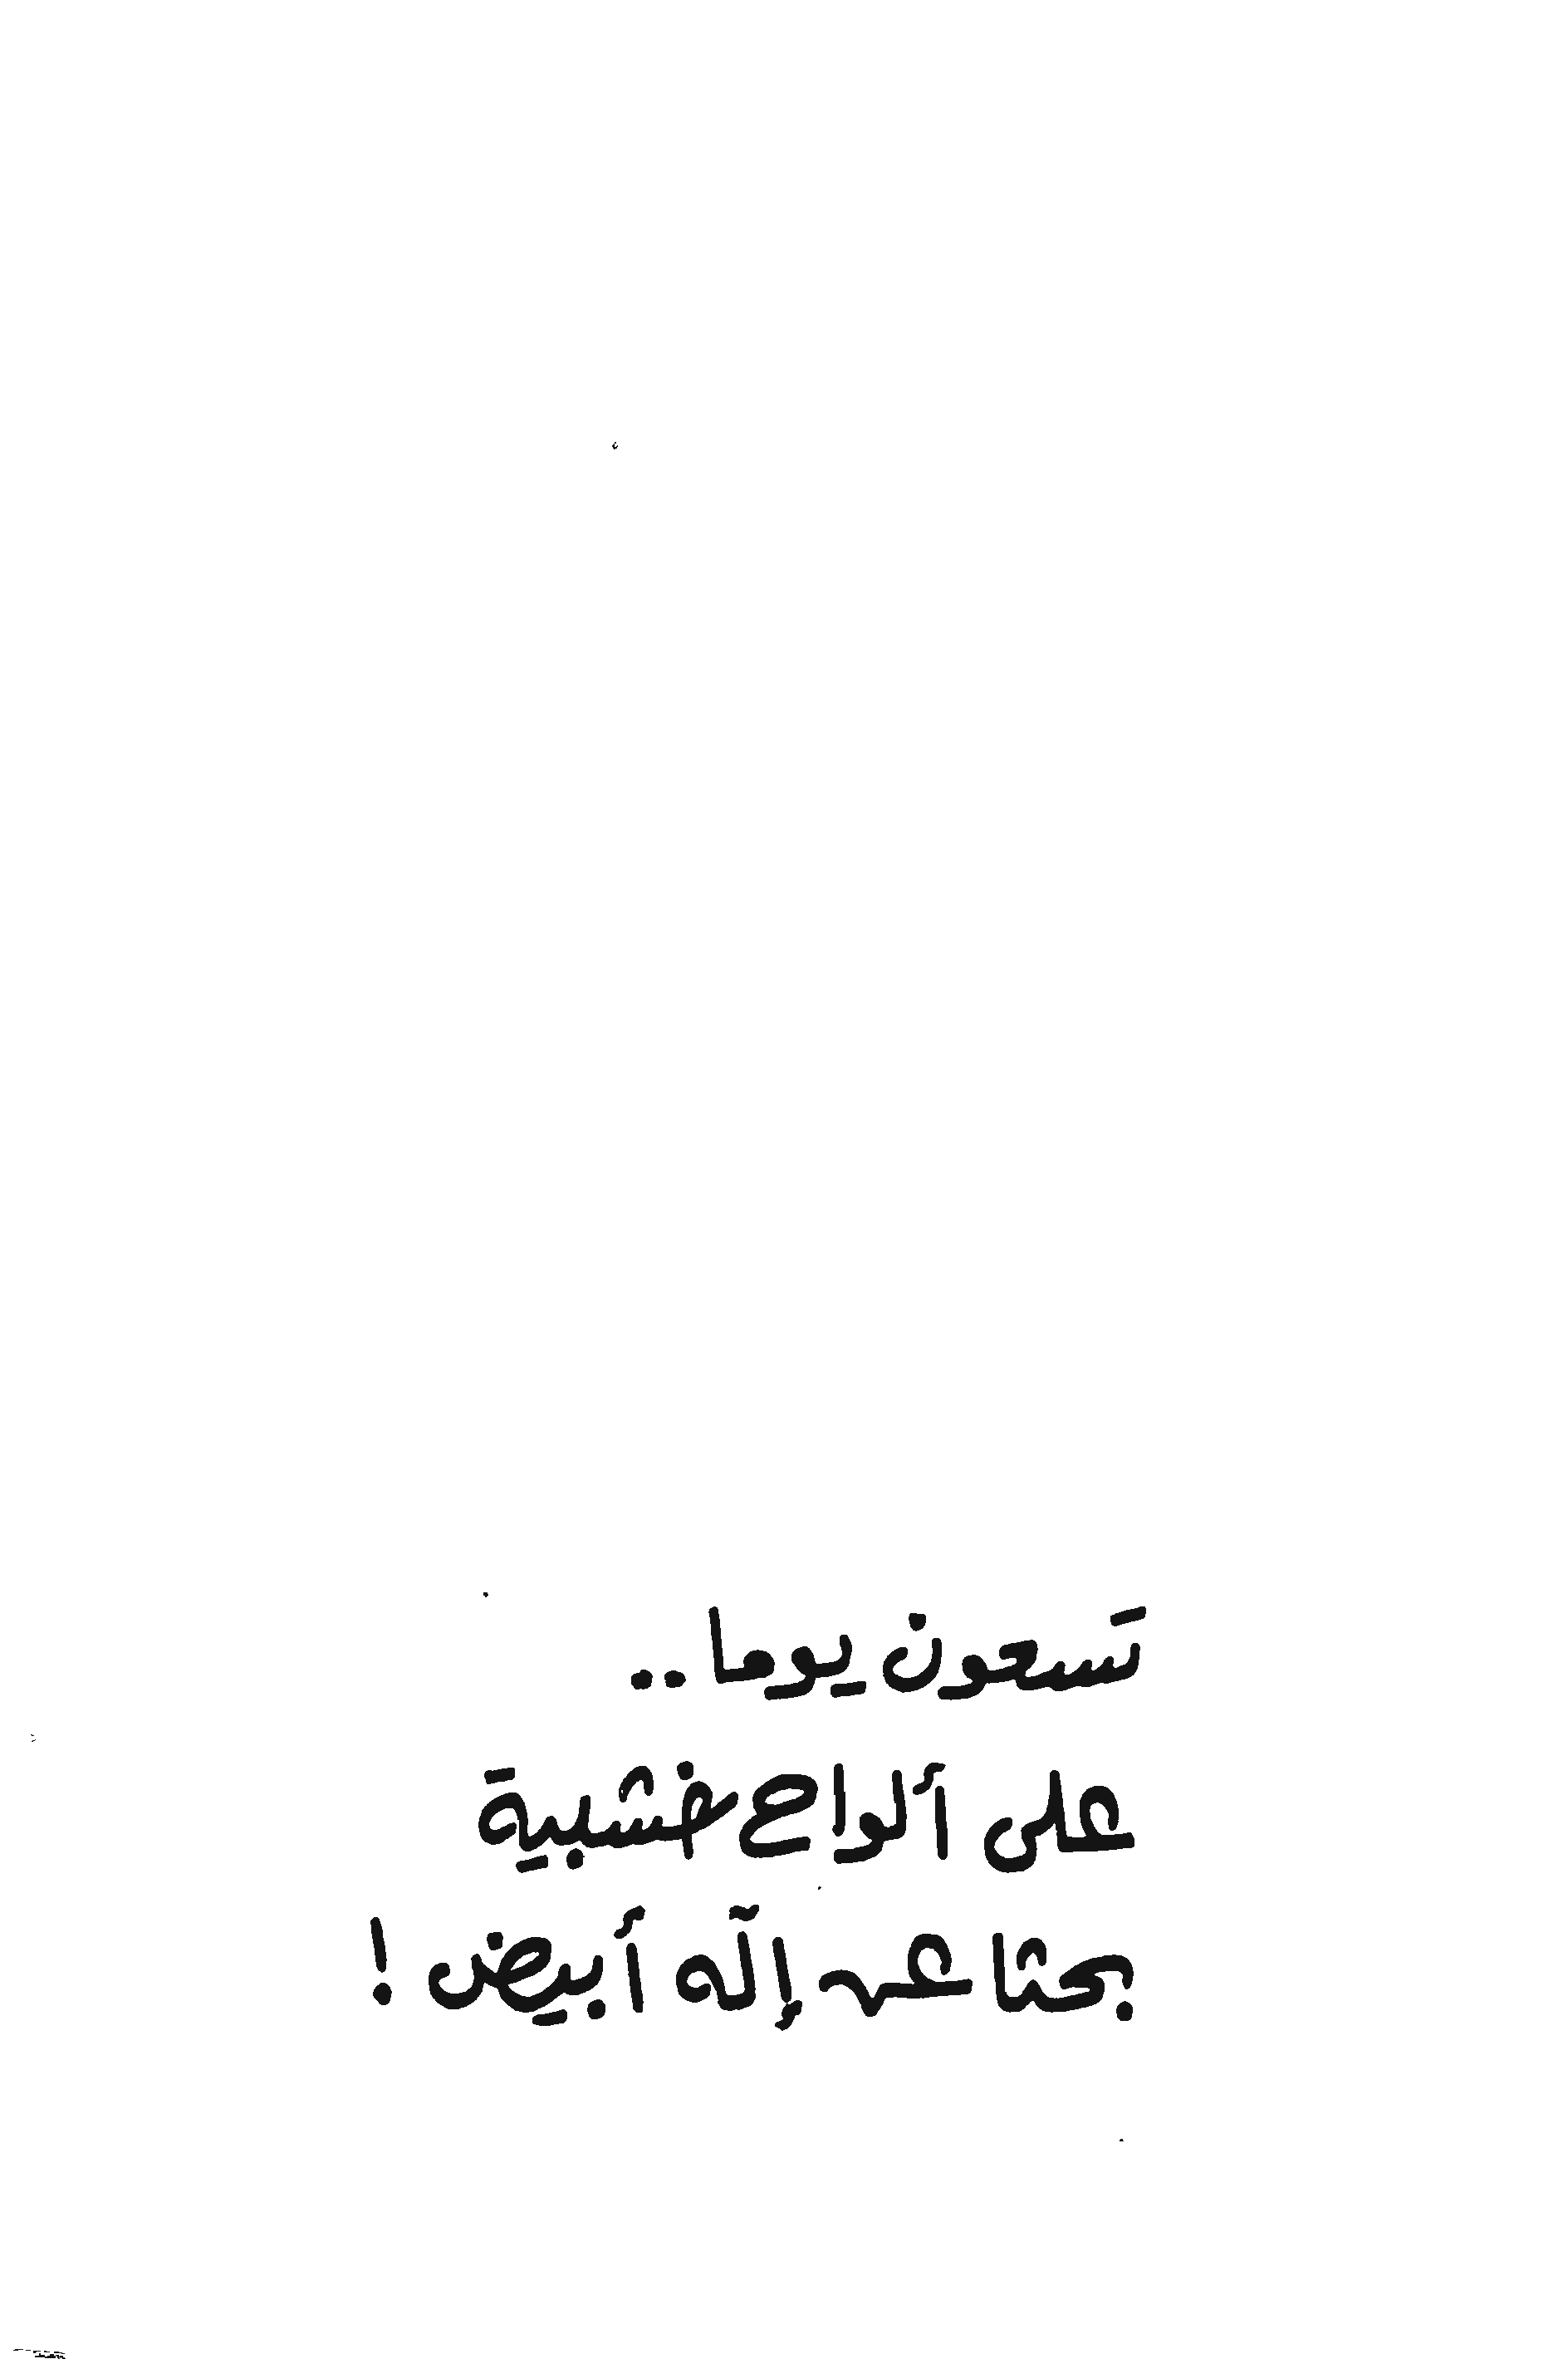 تسعون يوما ..
على ألواح خشبية
بحثا عن إله أبيض !